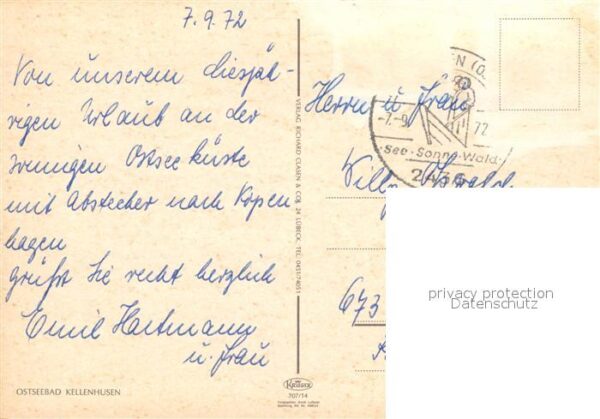 7.9.72
Von unserem diesjäh-
rigen Urlaub an der
sonnigen Ostseeküste
mit Abstecher nach Kopen
hagen
grüßt Sie recht herzlich
Emil Hartmann
u. Frau
OSTSEEBAD KELLENHUSEN
VERLAG RICHARD CLASEN & CO., 24 LÜBECK, TEL. 0451/74051
KRÜGER
707/14
Herrn u. Frau
EN (O
-7.-9.
72
·See·Sonne·Wald·
2436
Willi
673
privacy protection
Datenschutz